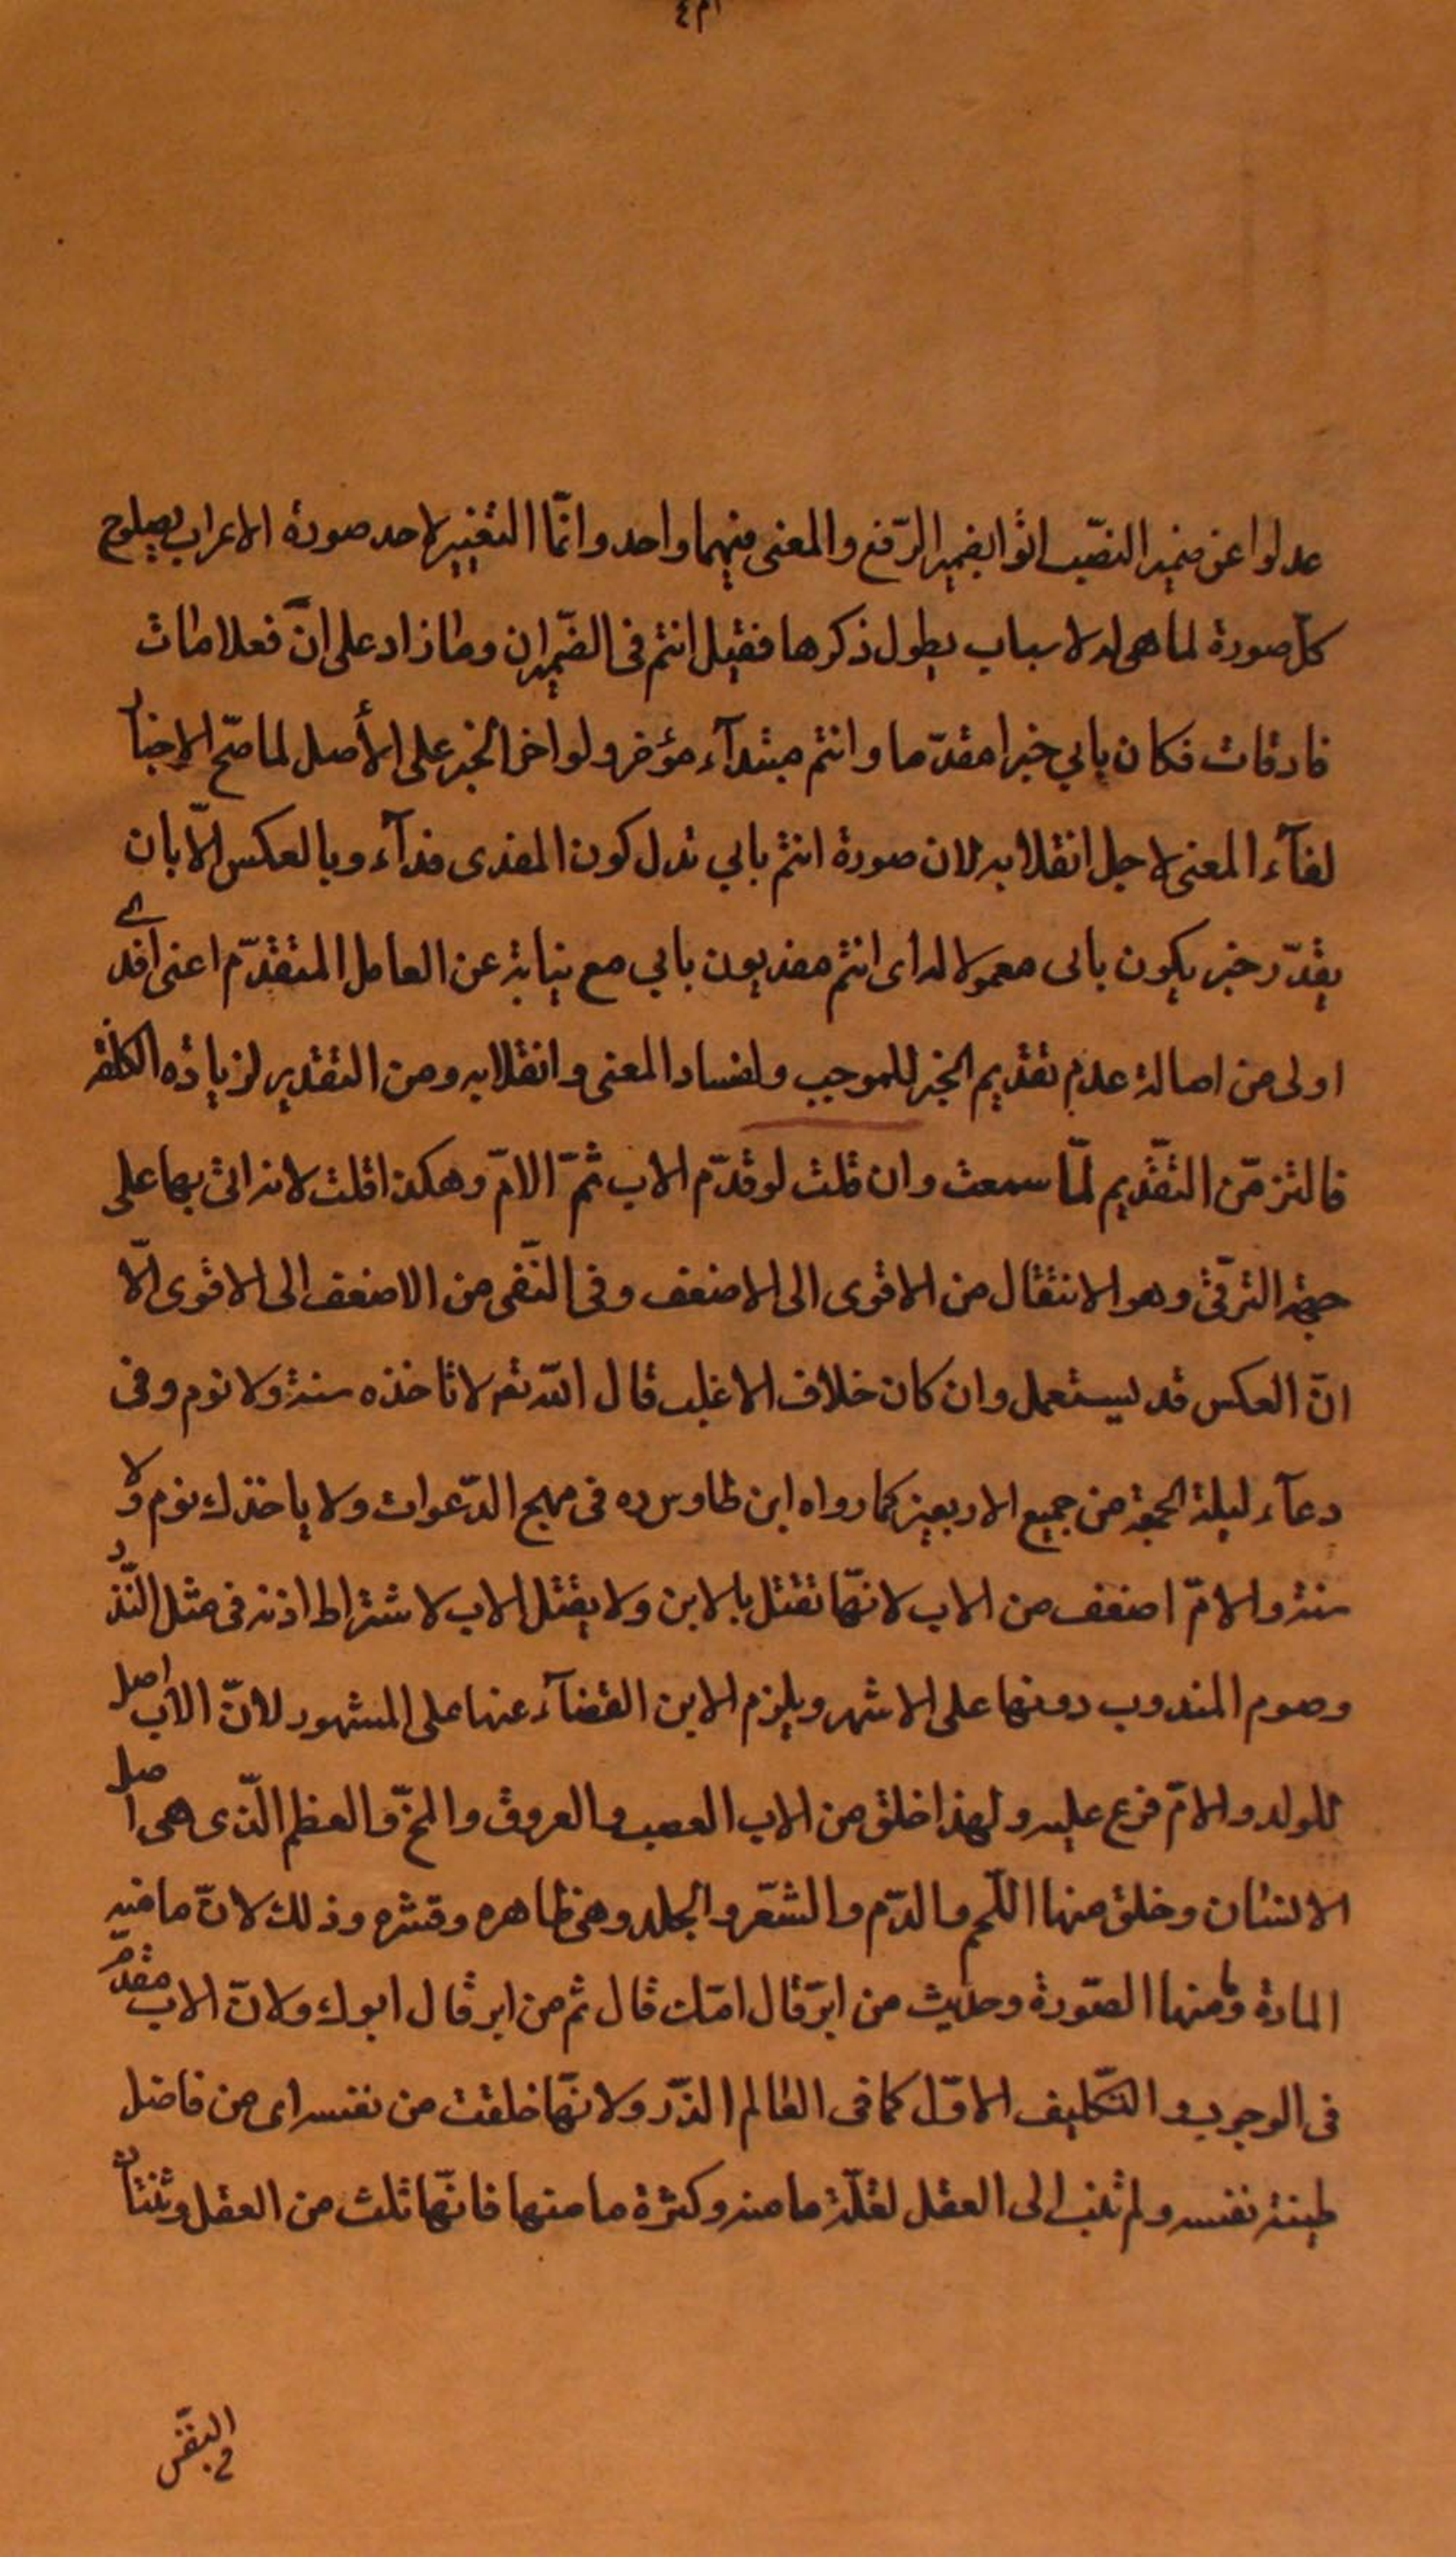 عدلوا عن ضمير النصب اتوا بضمير الرّفع والمعنى فيهما واحد وانّما التغيير لاحد صورة الاعراب يصلوح
كلّ صورة لما هى له لاسباب يطول ذكرها فقيل انتم فى الضّميران وما زاد على انّ فعلامات
فارقات فكان بابي خبرا مقدّما وانتم مبتدآء مؤخر ولو اخر الخبر على الأصل لما صحّ الاخبار
لفنآء المعنى لاجل انقلابه لان صورة انتم بابي تدل كون المفدى فدآء وبالعكس الّا بان
يقدّر خبر يكون بابى معمولا له أى انتم مفديون بابي مع نيابة عن العامل المتقدّم اعنى افدى
اولى من اصالة عدم تقديم الخبر للموجب ولفساد المعنى وانقلابه ومن التقدير لزيادة الكلفة
فالتزمّن التقديم لمّا سمعت وان قلت لو قدّم الاب ثمّ الامّ وهكذا قلت لانه اتى بها على
جهة الترقّى وهو الانتقال من الاقوى الى الاضعف وفى النّفى من الاضعف الى الاقوى الّا
انّ العكس قد يستعمل وان كان خلاف الاغلب قال اللّه تعم لا تاخذه سنة ولا نوم وفى
دعآء ليلة الجمعة من جميع الاربعين كما رواه ابن طاوس ره فى مهج الدّعوات ولا ياخذك نوم ولا
سنة والامّ اضعف من الاب لانّها تقتل بالابن ولا يقتل الاب لاشتراط اذنه فى مثل النّذر
وصوم المندوب دونها على الاشهر ويلزم الابن القضآء عنها على المشهور لانّ الاب اصل
للولد والامّ فرع عليه ولهذا خلق من الاب العصب والعروق والمخّ والعظم الّذى هى اصل
الانسان وخلق منها اللّحم والدّم والشّعر والجلد وهى ظاهره وقشره وذلك لانّ ما فيه
المادة وما منها الصّورة وحديث من ابرّ قال امّك قال ثم من ابر قال ابوك ولانّ الاب مقدّم
فى الوجوب والتّكليف الاوّل كما فى العالم الذّر ولانّها خلقت من نفسه اى من فاضل
طينة نفسه ولم تنب الى العقل لقلّة ما منه وكثرة ما منها فانّها ثلث من العقل وثلثان